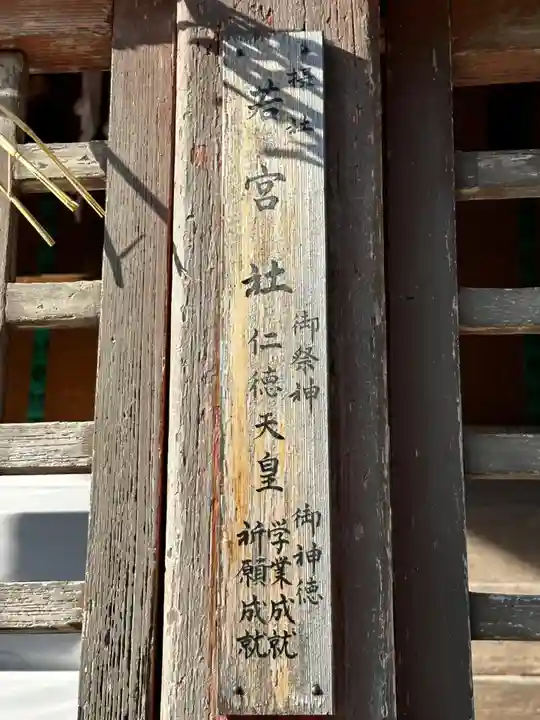 摂社
若宮社
御祭神
仁徳天皇
御神徳
学業成就
祈願成就